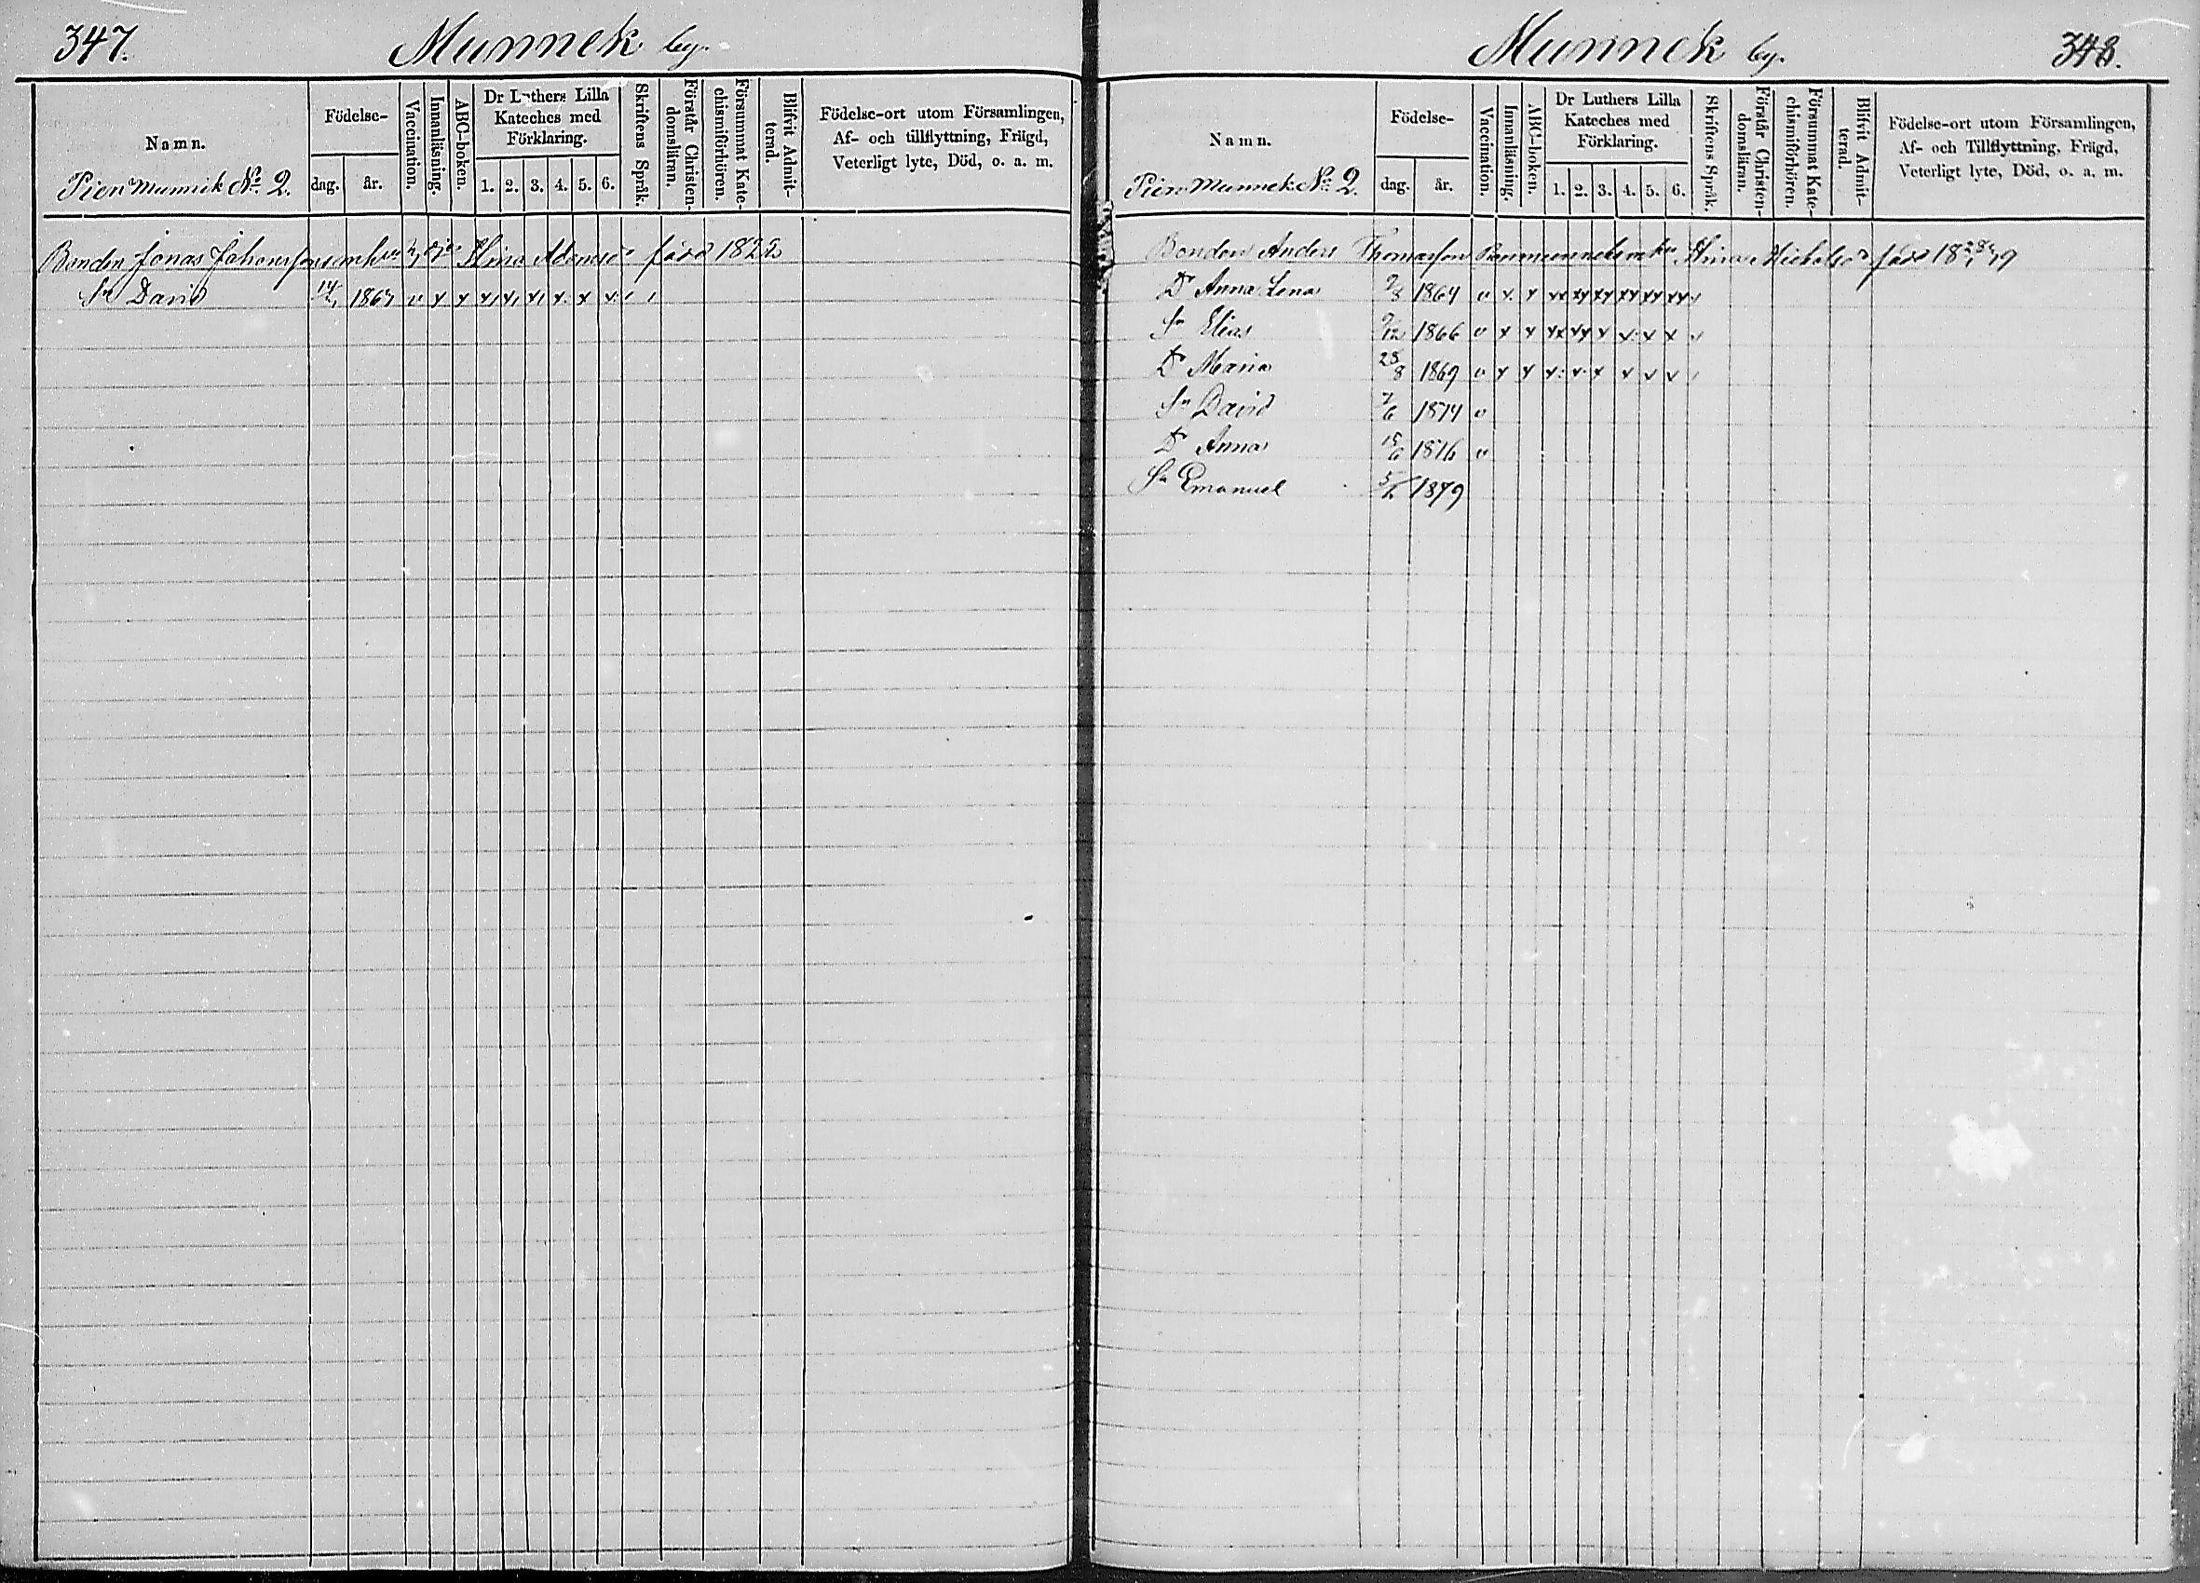 347.
Munnek by.
Namn.
Pien Munnik No 2.
Födelse-
dag.
år.
Vaccination.
Innanläsning.
ABC-boken.
Dr Luthers Lilla
Kateches med
Förklaring.
1. 2. 3. 4. 5. 6.
Skriftens Språk.
Förstår Christen-
domsläran.
Försummat Kate-
chismiförhören.
Blifvit Admit-
terad.
Födelse-ort utom Församlingen,
Af- och tillflyttning, Frägd,
Veterligt lyte, Död, o. a. m.
Bonden Jonas Johansson Stina född 1822
Sn David 14/2 1867 v x x x x x x x x
Munnek by.
348.
Namn.
Pien Munnek No 2.
Födelse-
dag.
år.
Vaccination.
Innanläsning.
ABC-boken.
Dr Luthers Lilla
Kateches med
Förklaring.
1. 2. 3. 4. 5. 6.
Skriftens Språk.
Förstår Christen-
domsläran.
Försummat Kate-
chismiförhören.
Blifvit Admit-
terad.
Födelse-ort utom Församlingen,
Af- och Tillflyttning, Frägd,
Veterligt lyte, Död, o. a. m.
Bonden Anders Thomasson Stina Michelsd född
Dr Anna Lena 9/8 1864 v x x xx xx xx xx xx xx
Sn Elias 9/12 1866 v x x xx xx x x x x
Dr Maria 28/8 1869 v x x x x x x x x
Sn David 7/6 1874 v
Dr Anna 15/6 1876 v
Sn Emanuel 5/2 1879